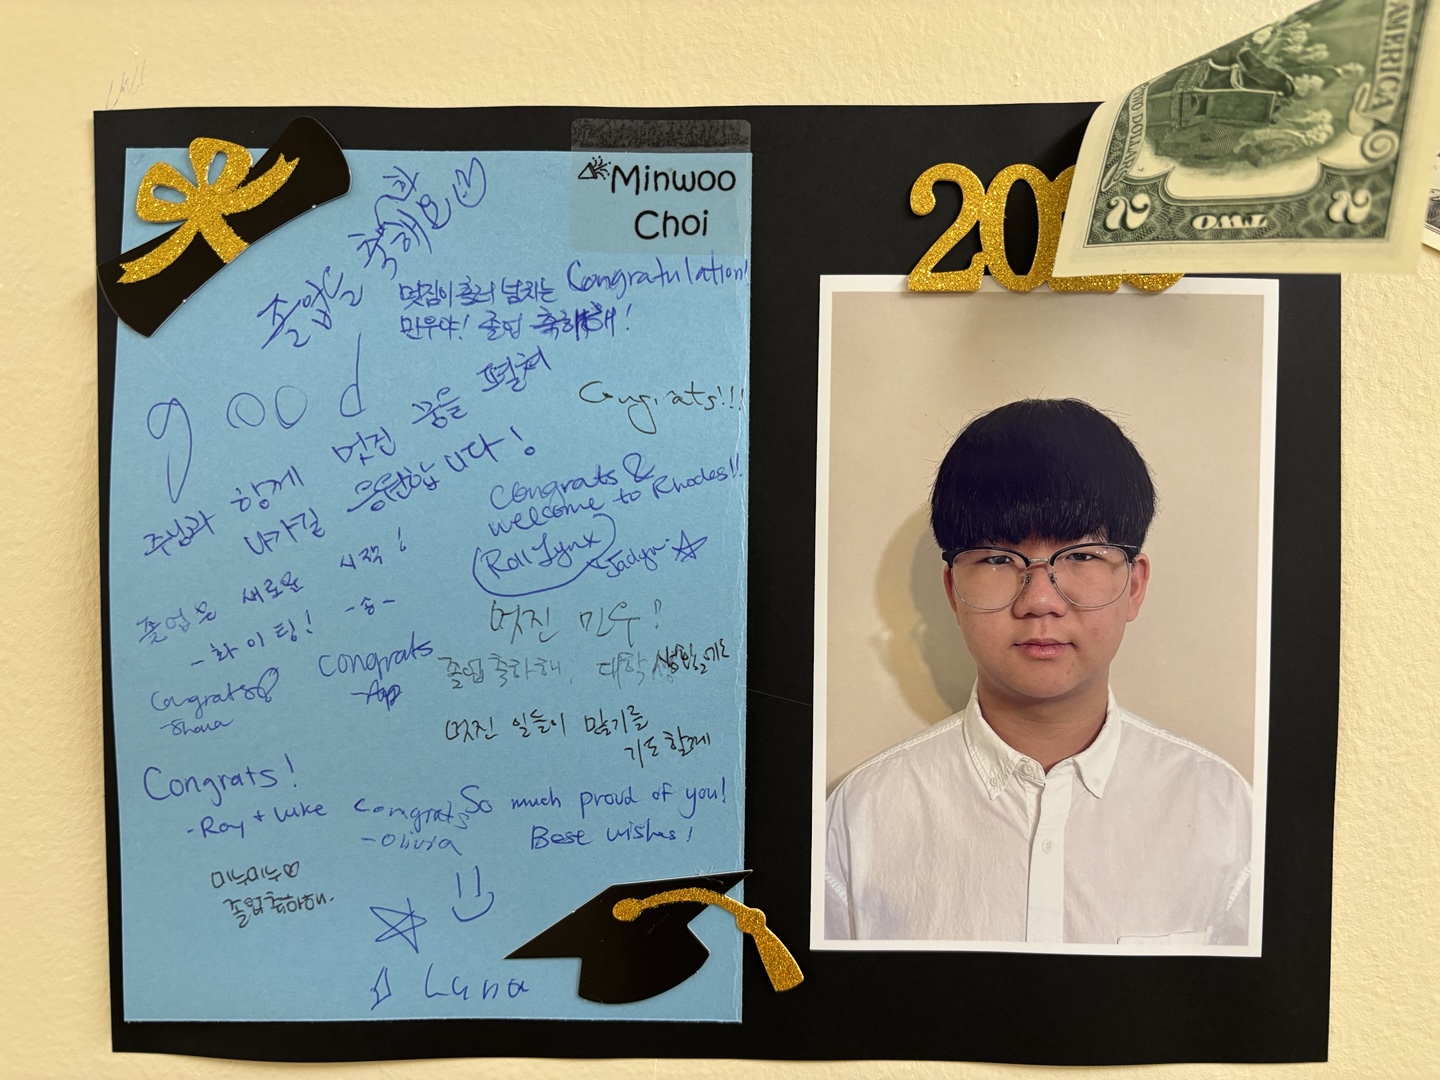 Minwoo
Choi
졸업을 축하해요
멋짐이 흘러 넘치는 Congratulation!
민우야! 졸업 축하해!
good
Congrats!!!
주님과 함께 멋진 꿈을 펼쳐
나가길 응원합니다!
Congrats &
welcome to Rhodes!!
Roll Lynx
Jadyn
졸업은 새로운 시작!
-화이팅! -송-
멋진 민우!
졸업 축하해. 대학 생활도
멋진 일들이 많기를
기도할게
Congrats
Shana
congrats
Congrats!
-Ray + Luke
Congrats
-Olivia
So much proud of you!
Best wishes!
미누미누♡
졸업축하해.
Luna
20
AMERICA
TWO DOLLARS
2 TWO 2